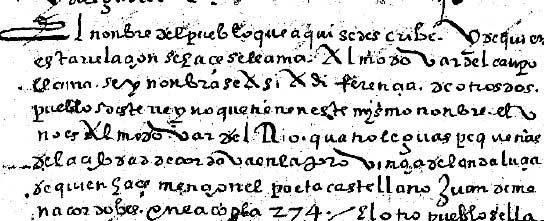 El nonbre del pueblo que aqui se describe. Y de quien
esta relaçon se haçe se llama. Almodovar del campo
llamase y nonbrase Asi A diferença. de otros dos.
pueblos deste reyno que tienen este mysmo nonbre. el V
no es Almodovar del Rio. quatro leguas pequeñas
de la cibdad de cordova en la provinçia del andaluzia
de quien haçe mençion el poeta castellano Juan de me
na cordobes. en la copla 274: / El otro pueblo se lla